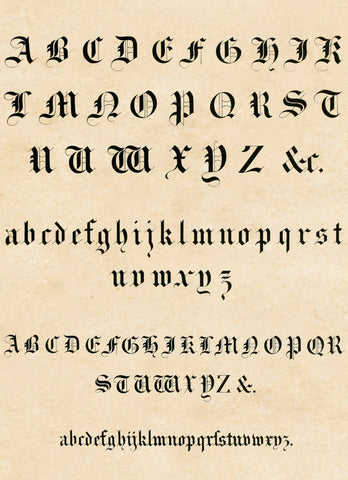 A B C D E F G H I K
L M N O P Q R S T
U U W X Y Z &c.
a b c d e f g h i j k l m n o p q r s t
u v w x y z
A B C D E F G H I K L M N O P Q R
S T U W X Y Z &.
a b c d e f g h ij k l m n o p q r ſ s t u v w x y z.